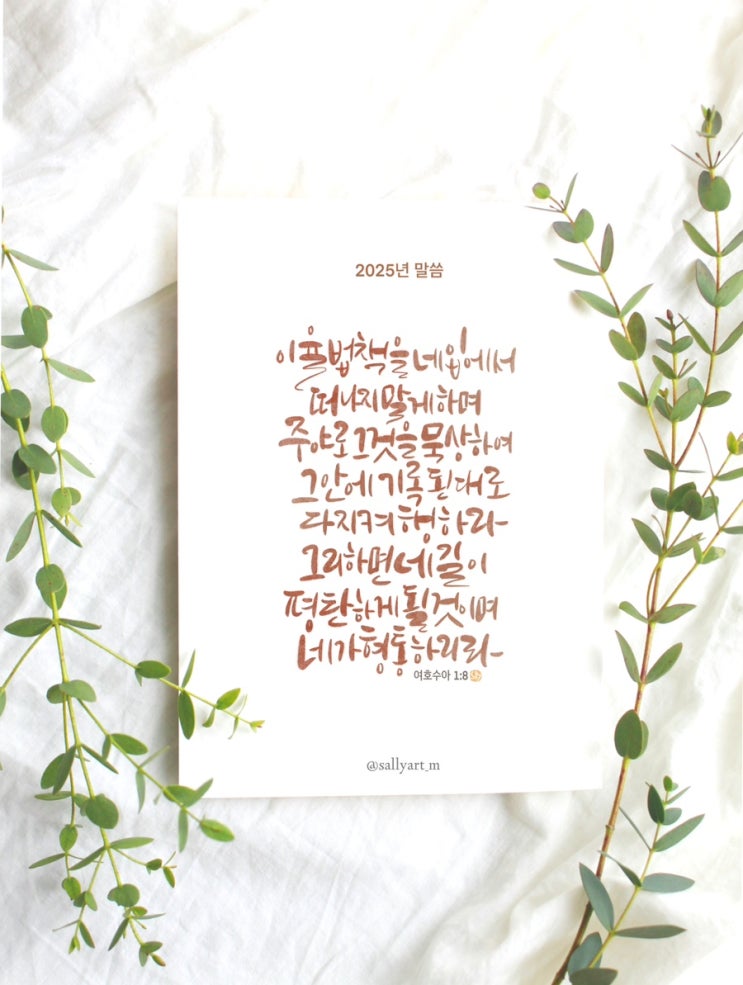 2025년 말씀
이율법책을네입에서
떠나지말게하며
주야로그것을묵상하여
그안에기록된대로
다지켜행하라
그리하면네길이
평탄하게될것이며
네가형통하리라
여호수아 1:8
@sallyart_m